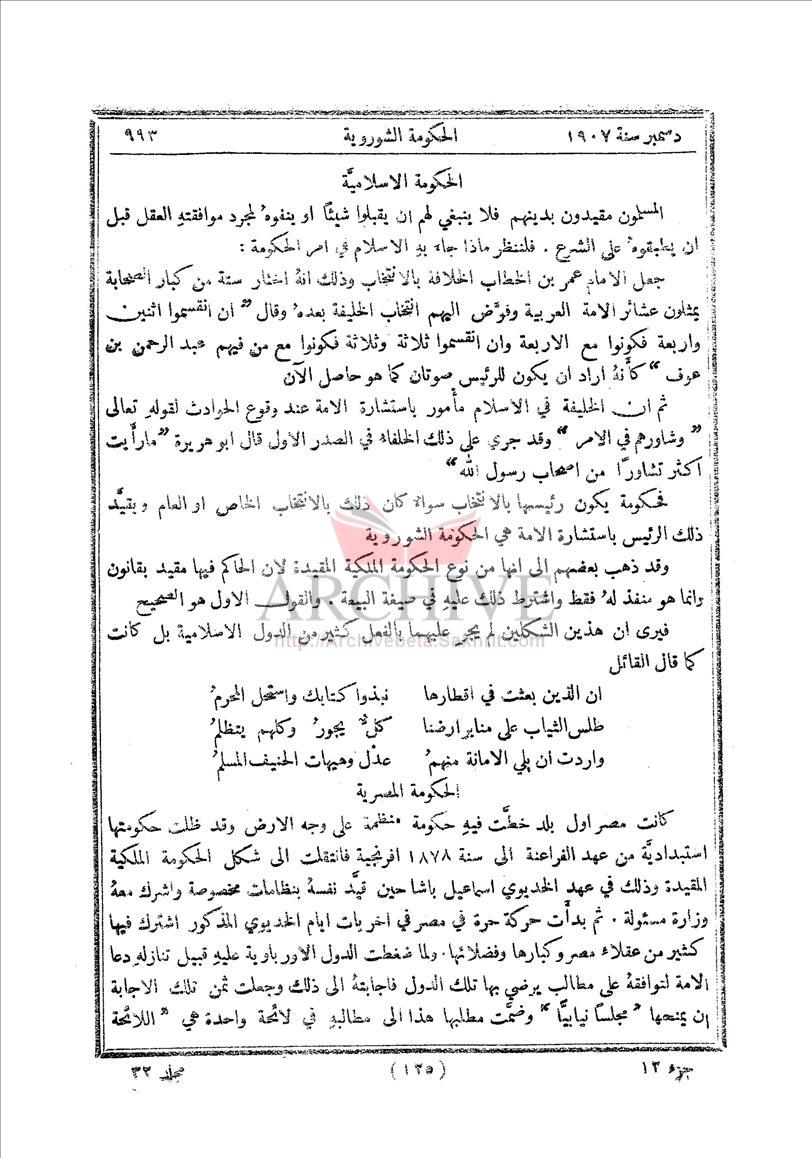 دسمبر سنة ١٩٠٧ الحكومة الشوروية ٩٩٣
الحكومة الاسلاميَّة
المسلمون مقيدون بدينهم فلا ينبغي لهم ان يقبلوا شيئًا او ينفوهُ لمجرد موافقتهِ العقل قبل
ان يطبقوهُ على الشرع . فلننظر ماذا جاء بهِ الاسلام في امر الحكومة :
جعل الامام عمر بن الخطاب الخلافة بالانتخاب وذلك انهُ اختار ستة من كبار الصحابة
يمثلون عشائر الامة العربية وفوَّض اليهم انتخاب الخليفة بعدهُ وقال ” ان انقسموا اثنين
واربعة فكونوا مع الاربعة وان انقسموا ثلاثة وثلاثة فكونوا مع من فيهم عبد الرحمن بن
عوف “ كأَنهُ اراد ان يكون للرئيس صوتان كما هو حاصل الآن
ثم ان الخليفة في الاسلام مأْمور باستشارة الامة عند وقوع الحوادث لقولهِ تعالى
” وشاورهم في الامر “ وقد جرى على ذلك الخلفاء في الصدر الاول قال ابو هريرة ” مارأَيت
اكثر تشاورًا من اصحاب رسول الله “
فحكومة يكون رئيسها بالانتخاب سواء كان ذلك بالانتخاب الخاص او العام ويقيَّد
ذلك الرئيس باستشارة الامة هي الحكومة الشوروية
وقد ذهب بعضهم الى انها من نوع الحكومة الملكية المقيدة لان الحاكم فيها مقيد بقانون
وانما هو منفذ لهُ فقط واشترط ذلك عليهِ في صيغة البيعة . والقول الاول هو الصحيح
فيرى ان هذين الشكلين لم يجرِ عليهما بالفعل كثير من الدول الاسلامية بل كانت
كما قال القائل
ان الذين بعثت في اقطارها نبذوا كتابك واستحل المحرمُ
طلس الثياب على منابر ارضنا كلٌّ يجورُ وكلهم يتظلمُ
واردت ان يلي الامانة منهمُ عدْل وهيهات الحنيف المسلمُ
الحكومة المصرية
كانت مصر اول بلد خطَّت فيهِ حكومة منظمة على وجه الارض وقد ظلت حكومتها
استبداديَّة من عهد الفراعنة الى سنة ١٨٧٨ افرنجية فانتقلت الى شكل الحكومة الملكية
المقيدة وذلك في عهد الخديوي اسماعيل باشا حين قيَّد نفسهُ بنظامات مخصوصة واشرك معهُ
وزارة مسئولة . ثم بدأَت حركة حرة في مصر في اخريات ايام الخديوي المذكور اشترك فيها
كثير من عقلاء مصر وكبارها وفضلائها . ولما ضغطت الدول الاورباوية عليهِ قبيل تنازلهِ دعا
الامة لتوافقهُ على مطالب يرضي بها تلك الدول فاجابتهُ الى ذلك وجعلت ثمن تلك الاجابة
ان يمنحها ” مجلسًا نيابيًّا “ وضمَّت مطلبها هذا الى مطالبهِ في لائحة واحدة هي ” اللائحة
جزء ١٢ (١٢٥) مجلد ٣٢
ARCHIVE
http://Archivebeta.Sakhrit.com